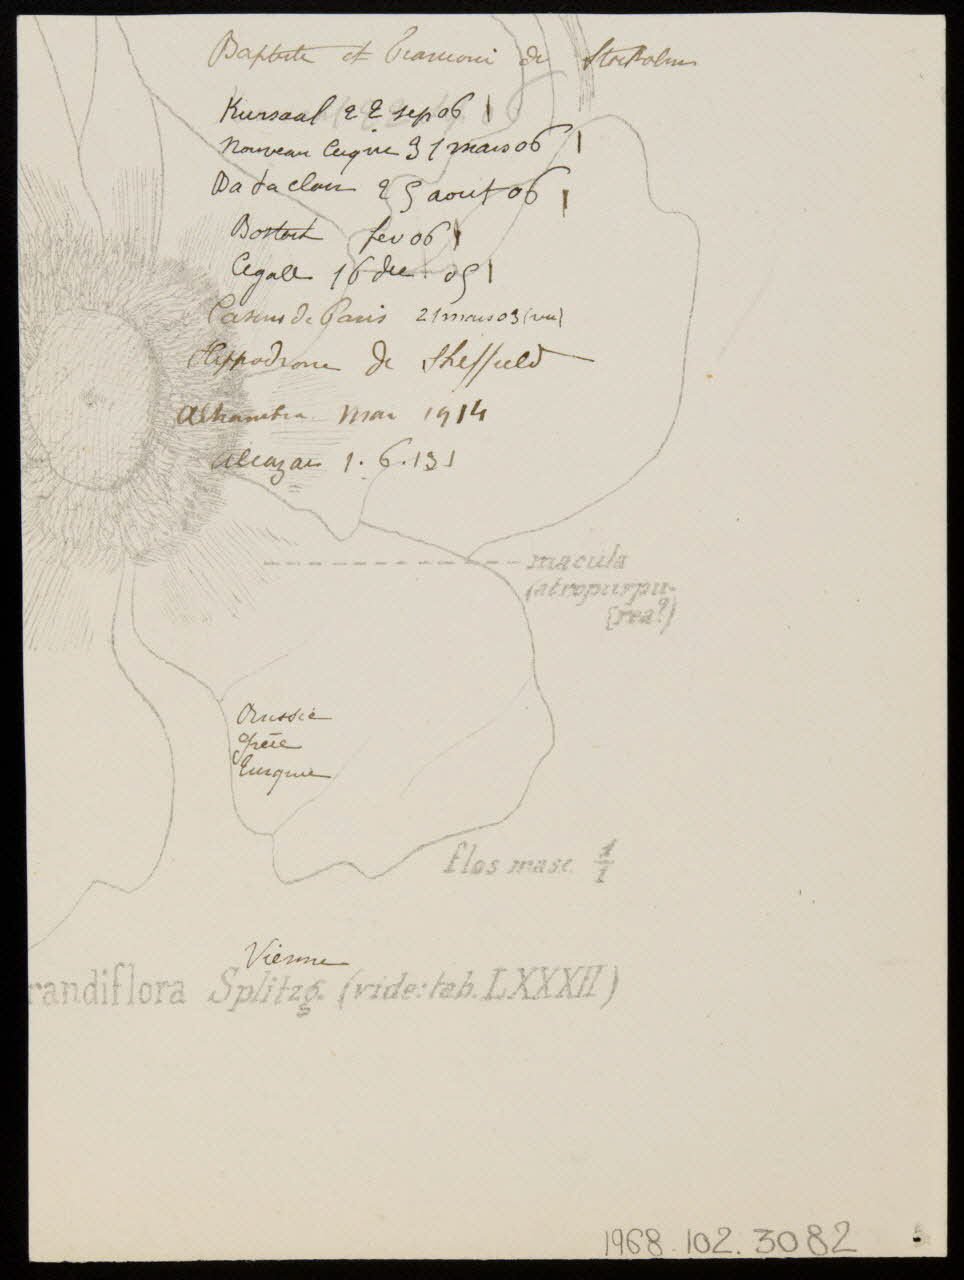 Baptiste et Franconi de Stockholm
Kursaal 22 sep 06
Nouveau Cirque 31 mars 06
Ba ta clan 25 aout 06
Bostock fev 06
Cigale 16 dec. 05
Casino de Paris 21 mars 03 (vu)
Hippodrome de Sheffield
Alhambra mai 1914
Alcazar 1.6.13
macula
(atropurpu-
[rea?)
Russie
Grèce
Turquie
flos masc. 1/1
Vienne
randiflora Splitzg. (vide: tab. LXXXII)
1968.102.3082